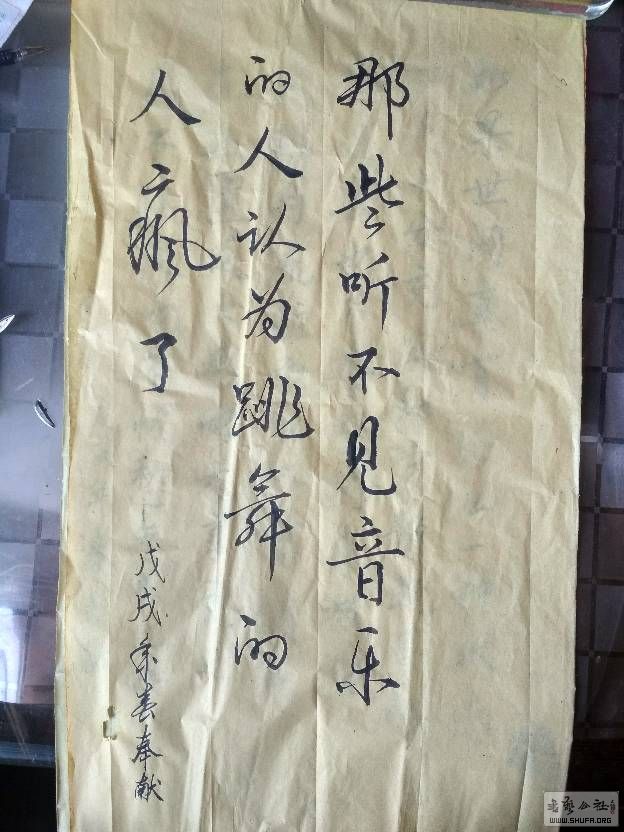 那些听不见音乐
的人认为跳舞的
人疯了
戊戌年春奉献
WWW.SHUFA.ORG